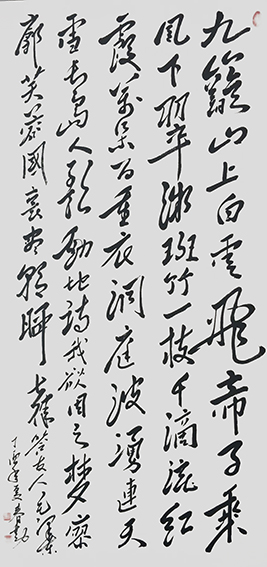 九嶷山上白雲飛帝子乘
風下翠微斑竹一枝千滴泪紅
霞萬朵百重衣洞庭波湧連天
雪長島人歌動地詩我欲因之夢寥
廓芙蓉國裏盡朝暉 七律答友人毛澤東
丁酉年夏